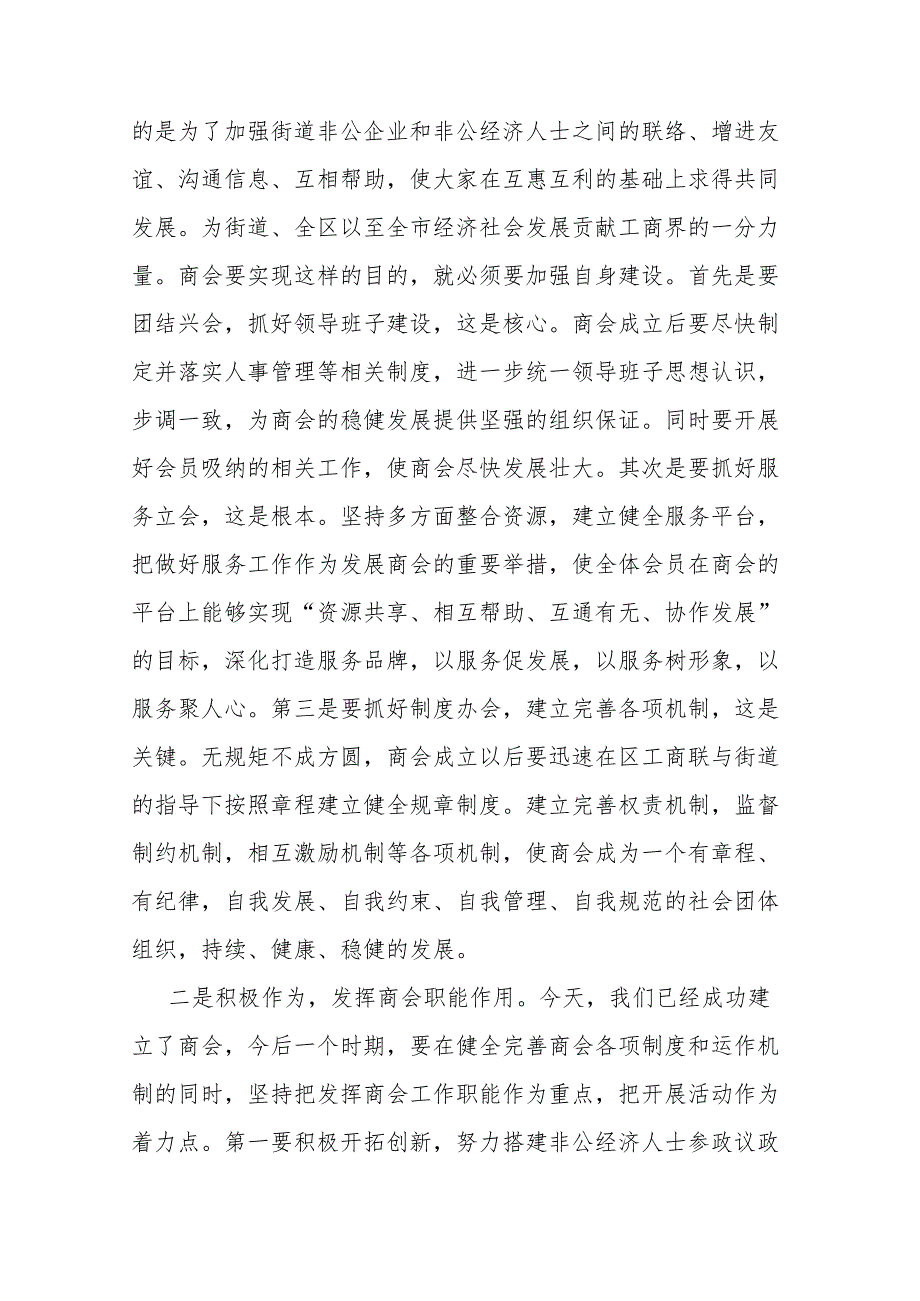 的是为了加强街道非公企业和非公经济人士之间的联络、增进友
谊、沟通信息、互相帮助，使大家在互惠互利的基础上求得共同
发展。为街道、全区以至全市经济社会发展贡献工商界的一分力
量。商会要实现这样的目的，就必须要加强自身建设。首先是要
团结兴会，抓好领导班子建设，这是核心。商会成立后要尽快制
定并落实人事管理等相关制度，进一步统一领导班子思想认识，
步调一致，为商会的稳健发展提供坚强的组织保证。同时要开展
好会员吸纳的相关工作，使商会尽快发展壮大。其次是要抓好服
务立会，这是根本。坚持多方面整合资源，建立健全服务平台，
把做好服务工作作为发展商会的重要举措，使全体会员在商会的
平台上能够实现“资源共享、相互帮助、互通有无、协作发展”
的目标，深化打造服务品牌，以服务促发展，以服务树形象，以
服务聚人心。第三是要抓好制度办会，建立完善各项机制，这是
关键。无规矩不成方圆，商会成立以后要迅速在区工商联与街道
的指导下按照章程建立健全规章制度。建立完善权责机制，监督
制约机制，相互激励机制等各项机制，使商会成为一个有章程、
有纪律，自我发展、自我约束、自我管理、自我规范的社会团体
组织，持续、健康、稳健的发展。
二是积极作为，发挥商会职能作用。今天，我们已经成功建
立了商会，今后一个时期，要在健全完善商会各项制度和运作机
制的同时，坚持把发挥商会工作职能作为重点，把开展活动作为
着力点。第一要积极开拓创新，努力搭建非公经济人士参政议政